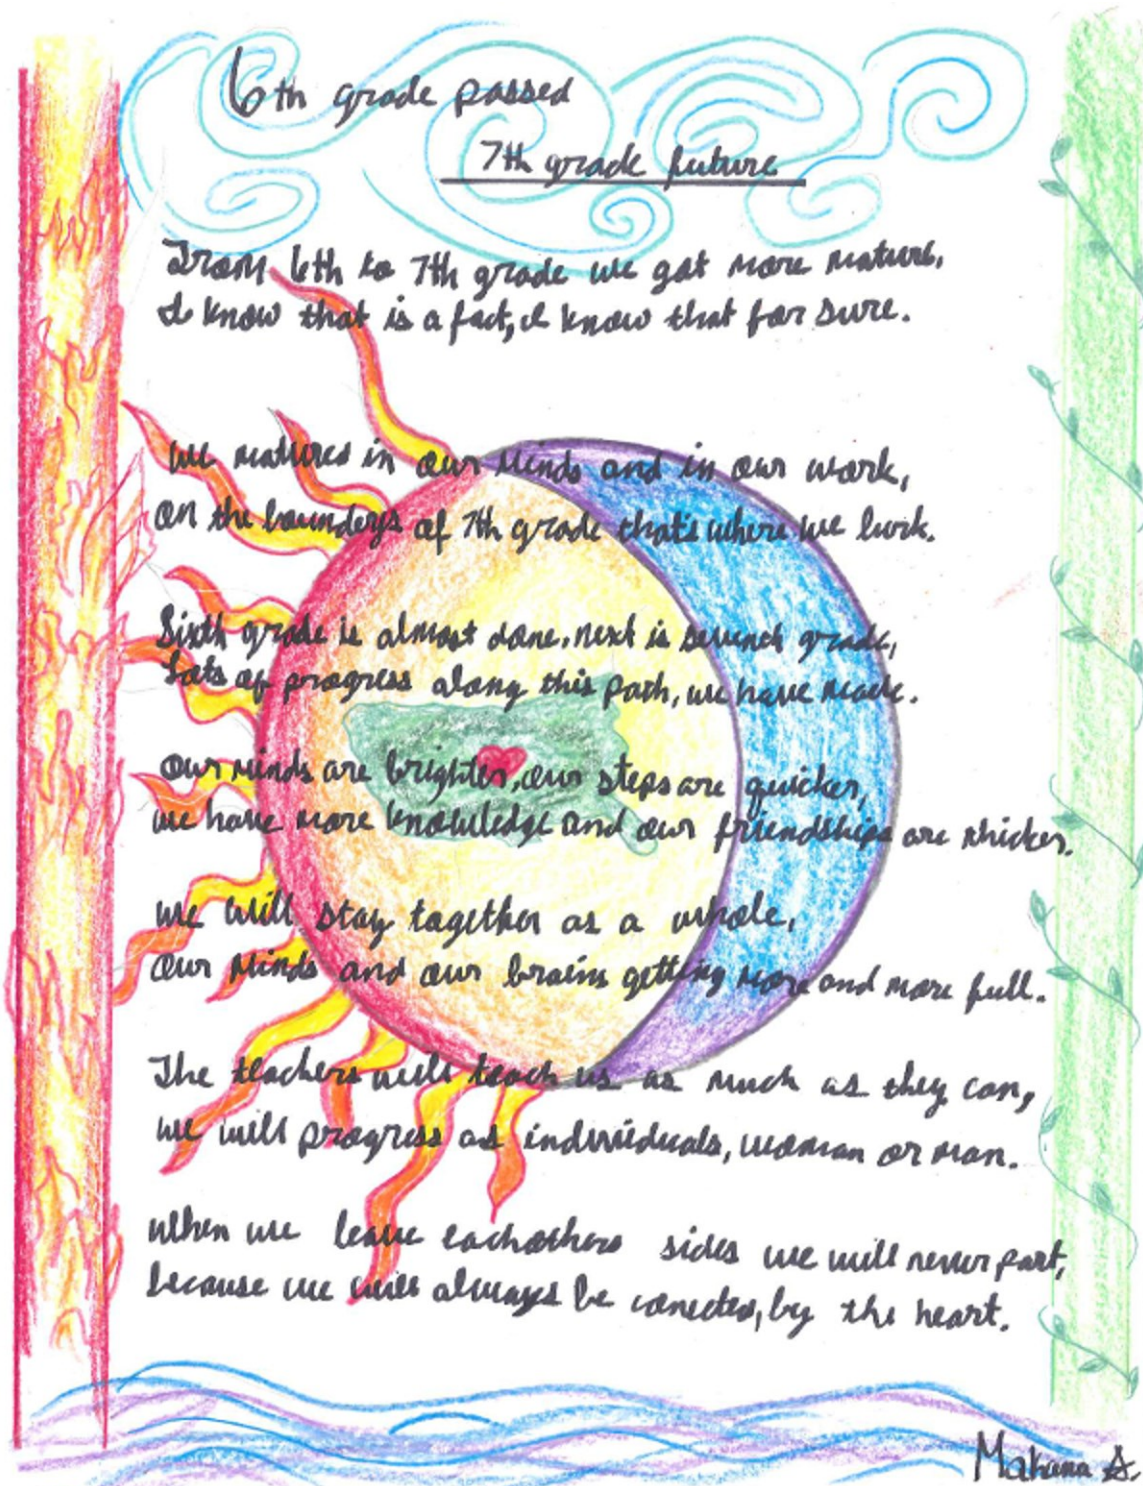 6th grade passed
7th grade future
From 6th to 7th grade we got more mature,
I know that is a fact, I know that for sure.
We matured in our minds and in our work,
On the bounderys of 7th grade that's where we lurk.
Sixth grade is almost done, next is seventh grade,
Lots of progress along this path, we have made.
Our minds are brighter, our steps are quicker,
we have more knowledge and our friendships are thicker.
We will stay together as a whole,
Our minds and our brains getting more and more full.
The teachers will teach us as much as they can,
we will progress as individuals, woman or man.
When we leave eachothers sides we will never part,
because we will always be conected, by the heart.
Makana A.